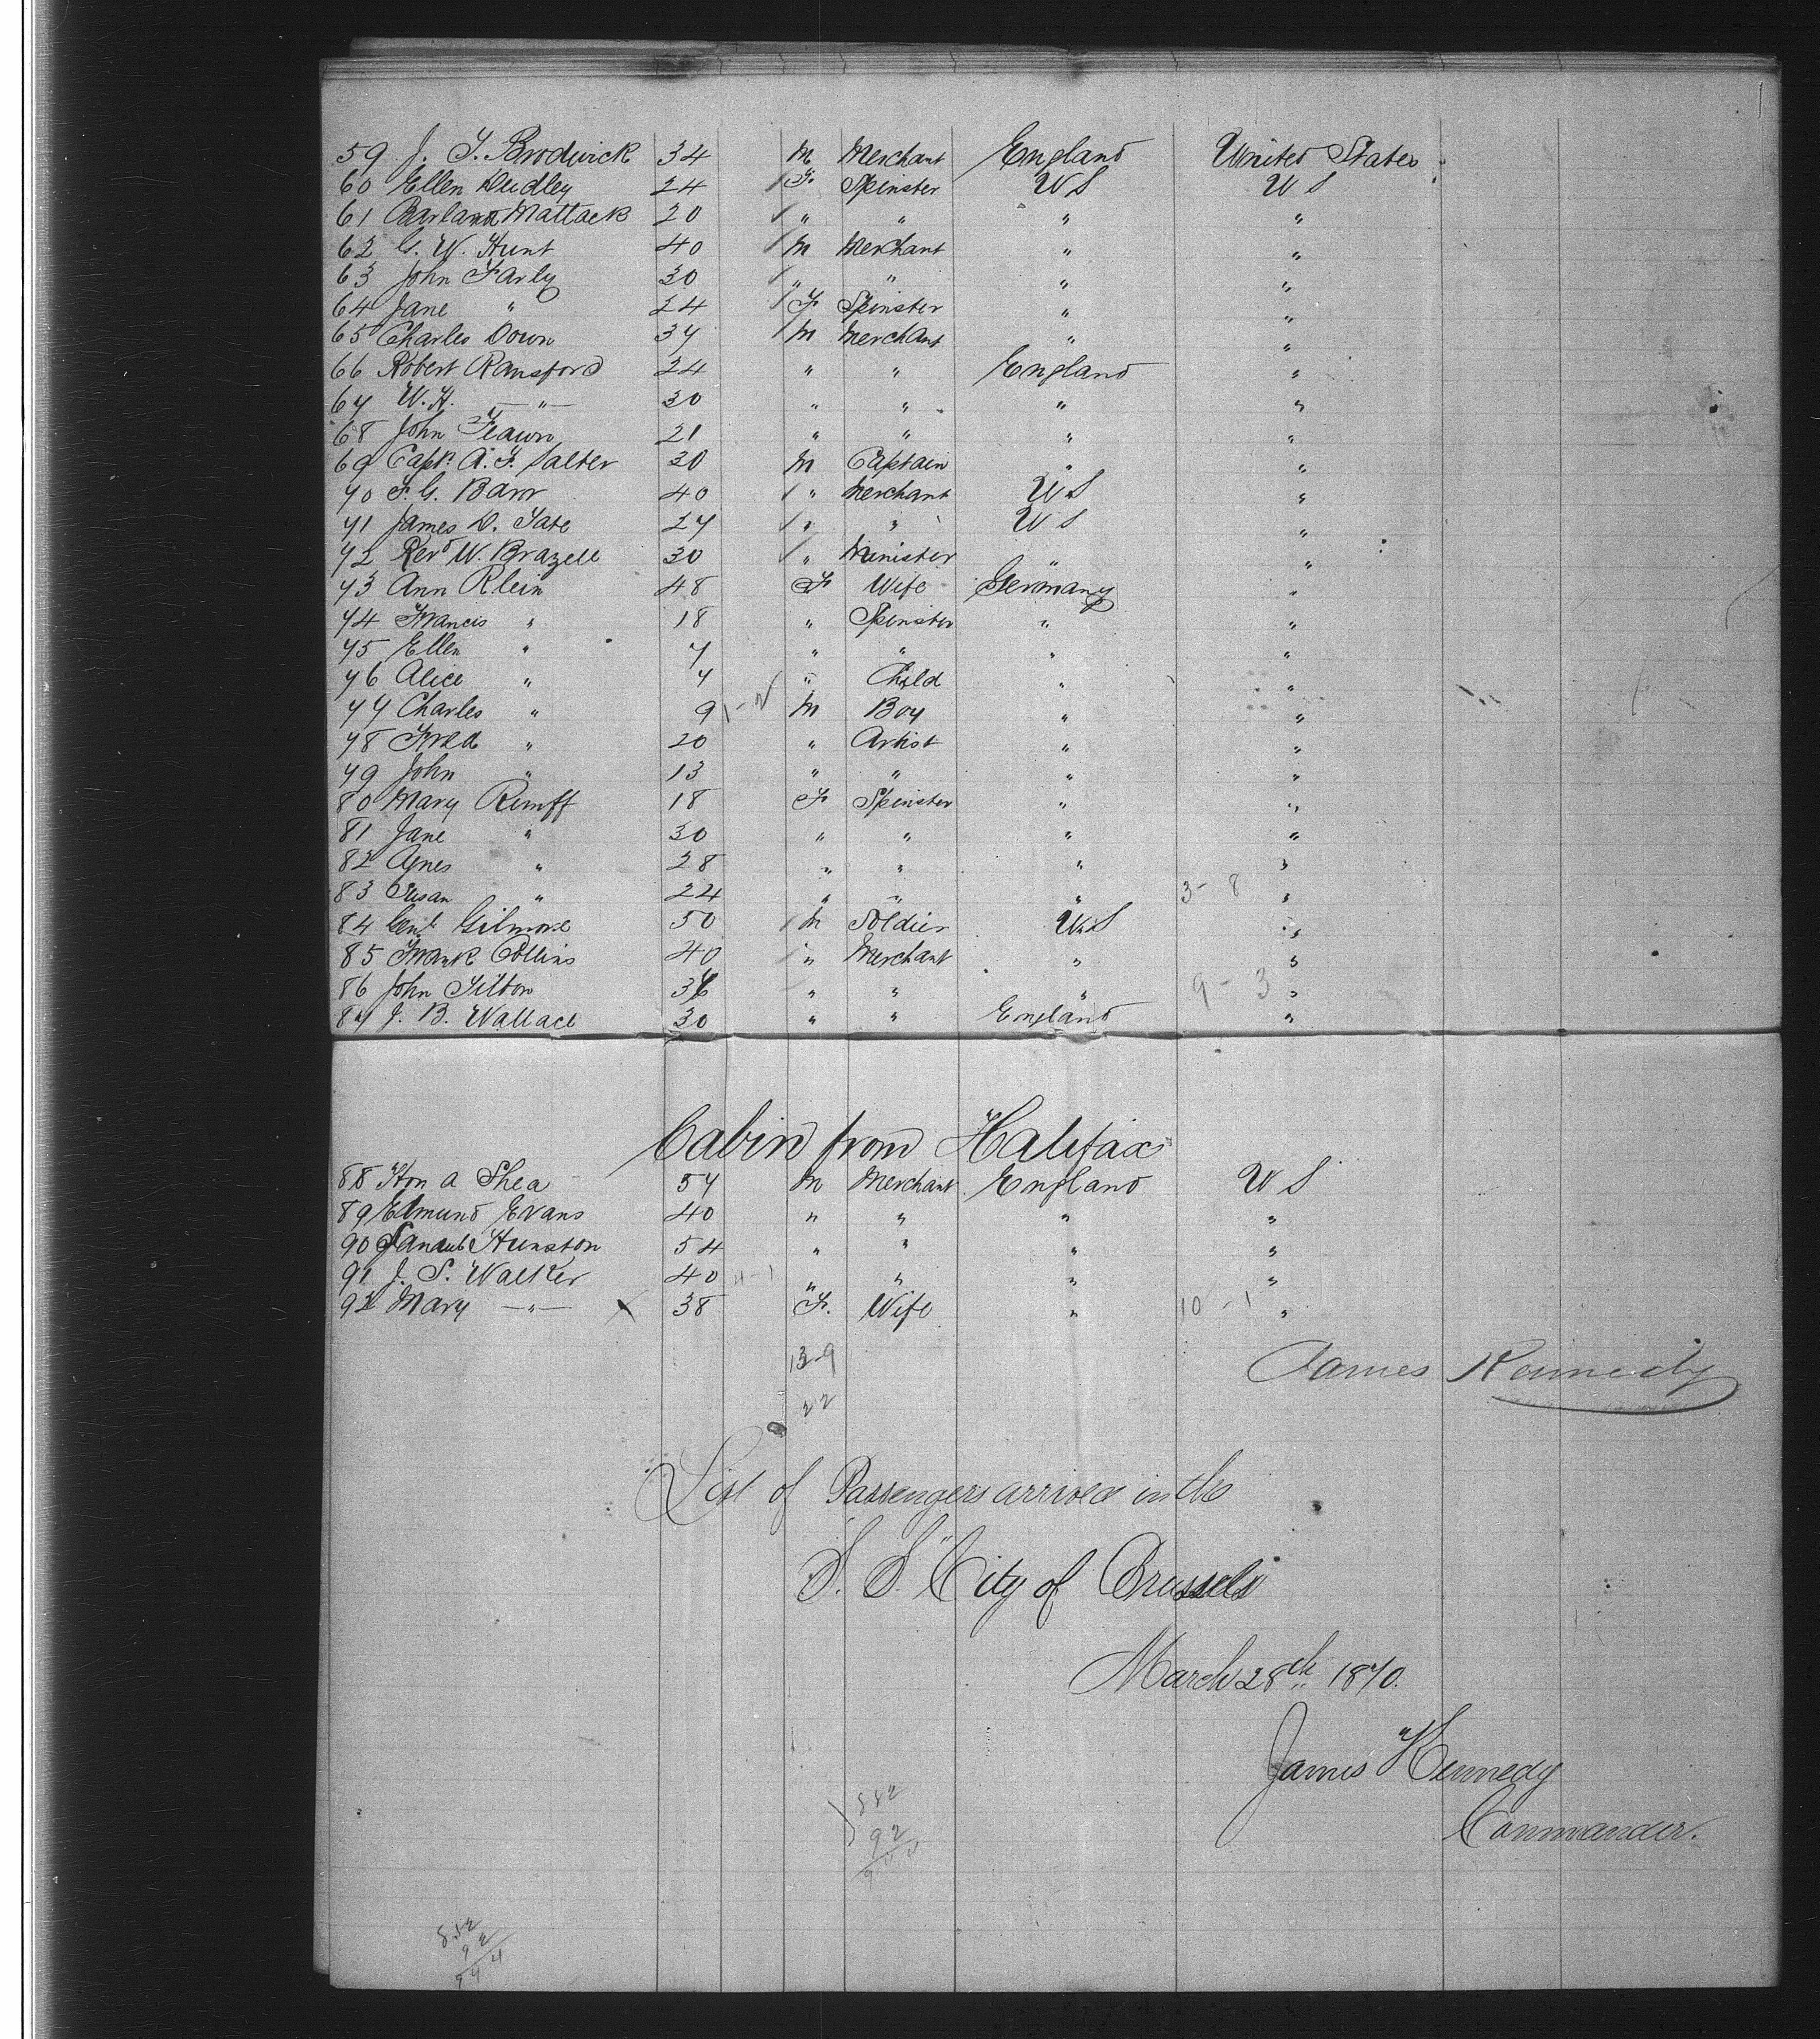 59 J. T. Brodwick 34 M Merchant England United States
60 Ellen Dudley 24 / F. Spinster U S U S
61 Mattack 20 / " " " "
62 G. W. Hunt 40 / M Merchant " "
63 John Farly 30 / " " " "
64 Jane " 24 / F Spinster " "
65 Charles Down 37 / M Merchant " "
66 Robert Ransford 24 " " England "
67 W. H. — " — 30 " " " "
68 John Flawn 21 " " " "
69 Capt. A. F. Salter 30 M Captain " "
70 F. G. Barr 40 / " Merchant U S "
71 James D. Tate 27 / " " U S "
72 Revd W. Brazell 30 / " Minister " "
73 Ann Klein 48 F Wife Germany "
74 Francis " 18 " Spinster " "
75 Ellen " 7 " " " "
76 Alice " 4 " Child " "
77 Charles " 9 M Boy " "
78 Fred " 20 " Artist " "
79 John " 13 " " " "
80 Mary Rumff 18 F Spinster " "
81 Jane " 30 " " " "
82 Agnes " 28 " " " "
83 Susan " 24 " " " 3-8 "
84 Genl Gilmore 50 / M Soldier U.S "
85 Frank Collins 40 / " Merchant " "
86 John Tilton 36 " " " 9-3 "
87 J. B. Wallace 30 " " England "
Cabin from Halifax
88 Hon A Shea 54 M Merchant England U S
89 Edmund Evans 40 " " " "
90 Hunston 54 " " " "
91 J. S. Walker 40 11-1 " " " "
92 Mary — " — X 38 F. Wife " 10-1 "
13-9
22
James Kennedy
List of Passengers arrived in the
S. S. "City of Brussels"
March 28th 1870.
James Kennedy
Commander.
852
92
852
92
944